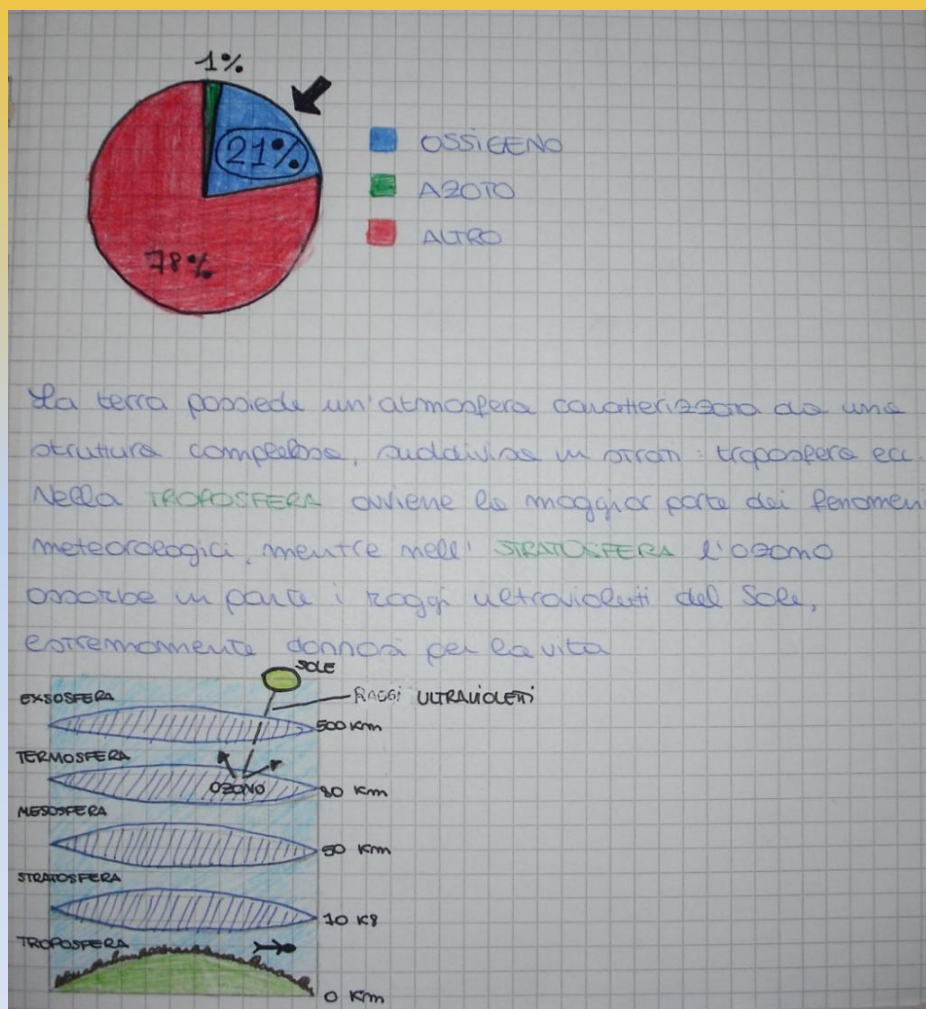 1%
21%
78%
OSSIGENO
AZOTO
ALTRO
La terra possiede un'atmosfera caratterizzata da una
struttura complessa, suddivisa in strati: troposfera ecc.
Nella TROPOSFERA avviene la maggior parte dei fenomeni
meteorologici, mentre nell' STRATOSFERA l'ozono
assorbe in parte i raggi ultravioleti del Sole,
estremamente dannosi per la vita
SOLE
EXSOSFERA
RAGGI ULTRAVIOLETI
500 Km
TERMOSFERA
OZONO
80 Km
MESOSFERA
50 Km
STRATOSFERA
10 K8
TROPOSFERA
0 Km